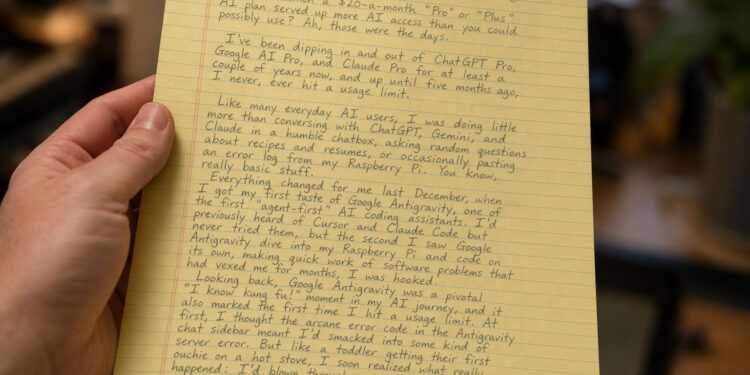 a $20-a-month "Pro" or "Plus"
AI plan served up more AI access than you could
possibly use? Ah, those were the days.
I've been dipping in and out of ChatGPT Pro,
Google AI Pro, and Claude Pro for at least a
couple of years now, and up until five months ago,
I never, ever hit a usage limit.
Like many everyday AI users, I was doing little
more than conversing with ChatGPT, Gemini, and
Claude in a humble chatbox, asking random questions
about recipes and resumes, or occasionally pasting
an error log from my Raspberry Pi. You know,
really basic stuff.
Everything changed for me last December, when
I got my first taste of Google Antigravity, one of
the first "agent-first" AI coding assistants. I'd
previously heard of Cursor and Claude Code but
never tried them, but the second I saw Google
Antigravity dive into my Raspberry Pi and code on
its own, making quick work of software problems that
had vexed me for months, I was hooked.
Looking back, Google Antigravity was a pivotal
"I know kung fu!" moment in my AI journey, and it
also marked the first time I hit a usage limit. At
first, I thought the arcane error code in the Antigravity
chat sidebar meant I'd smacked into some kind of
server error. But like a toddler getting their first
ouchie on a hot stove, I soon realized what really
happened: I'd blown